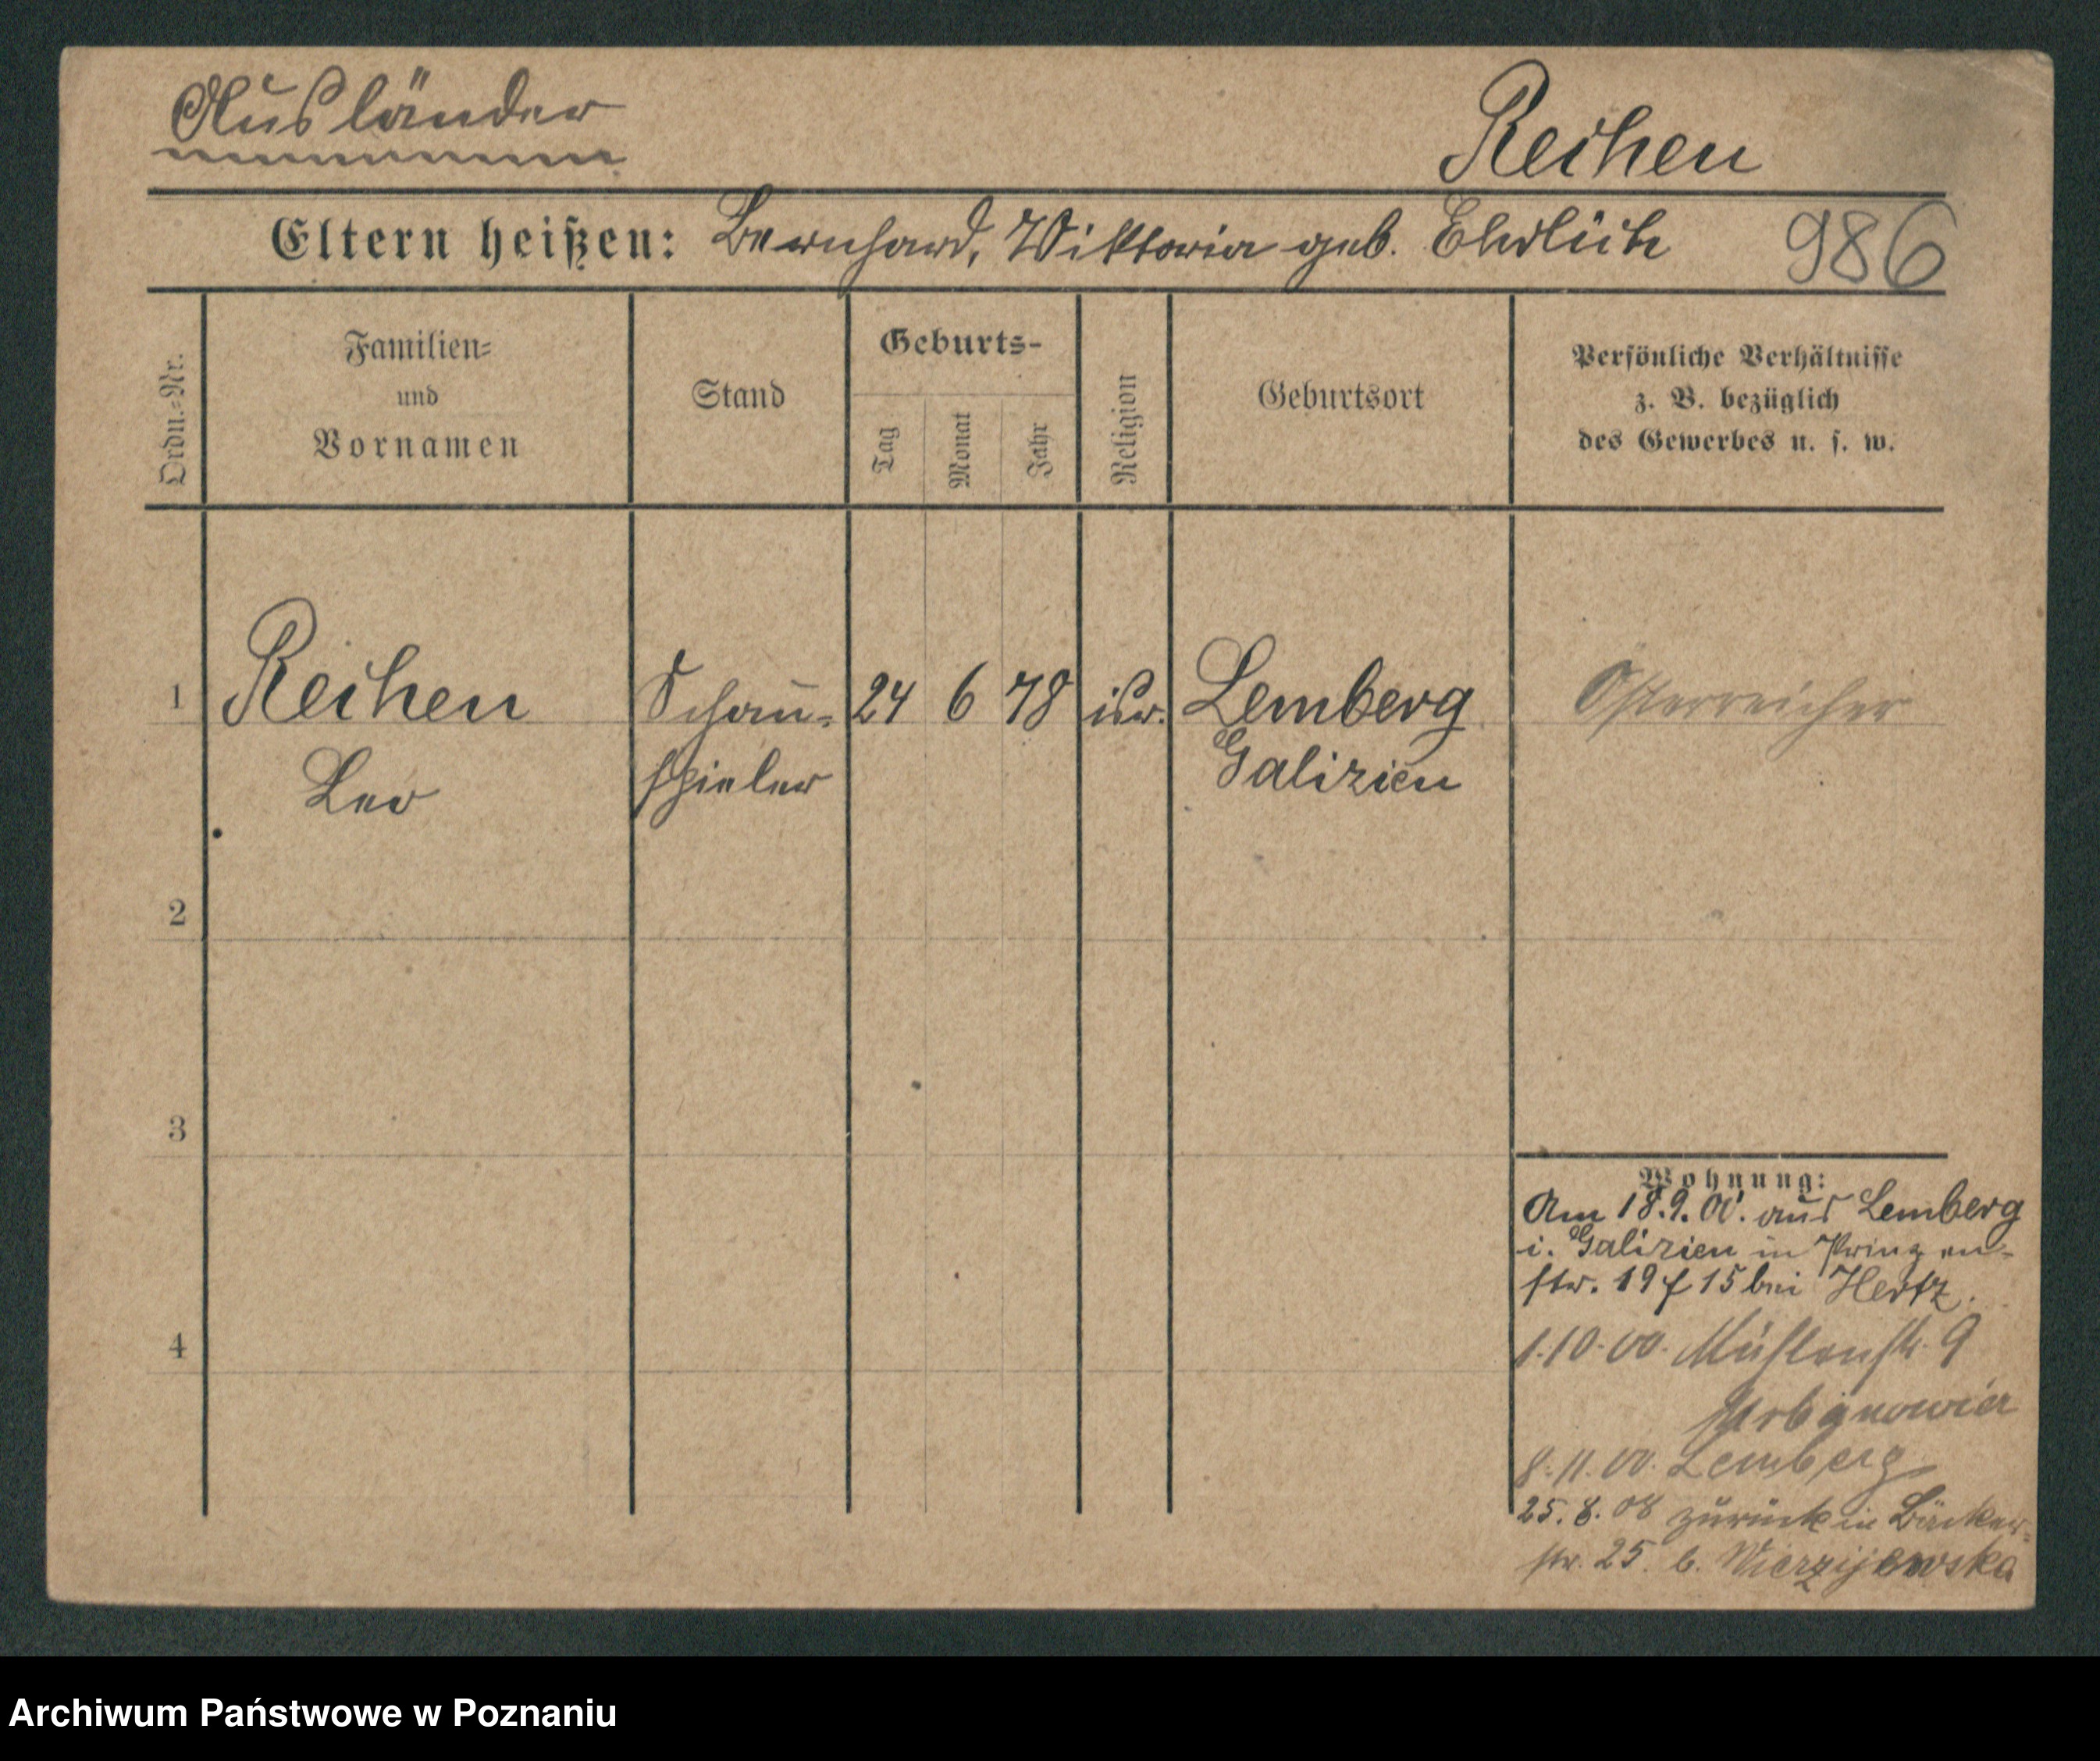 Ausländer
Reihen
Eltern heißen: Bernhard, Viktoria geb. Ehrlich 986
Ordn.=Nr.
Familien=
und
Vornamen
Stand
Geburts-
Tag
Monat
Jahr
Religion
Geburtsort
Persönliche Verhältnisse
z. B. bezüglich
des Gewerbes u. s. w.
1 Reihen Schau= 24 6 78 isr. Lemberg Österreicher
Leo spieler Galizien
2
3
4
Wohnung:
Am 18.9.00. aus Lemberg
i. Galizien in Prinzen=
str. 19 15 bei Hertz.
1.10.00. Mühlenstr. 9
Urbanowicz
8.11.00. Lemberg
25.8.08 zurück in Bäcker=
str. 25 b. Wierzijewska
Archiwum Państwowe w Poznaniu